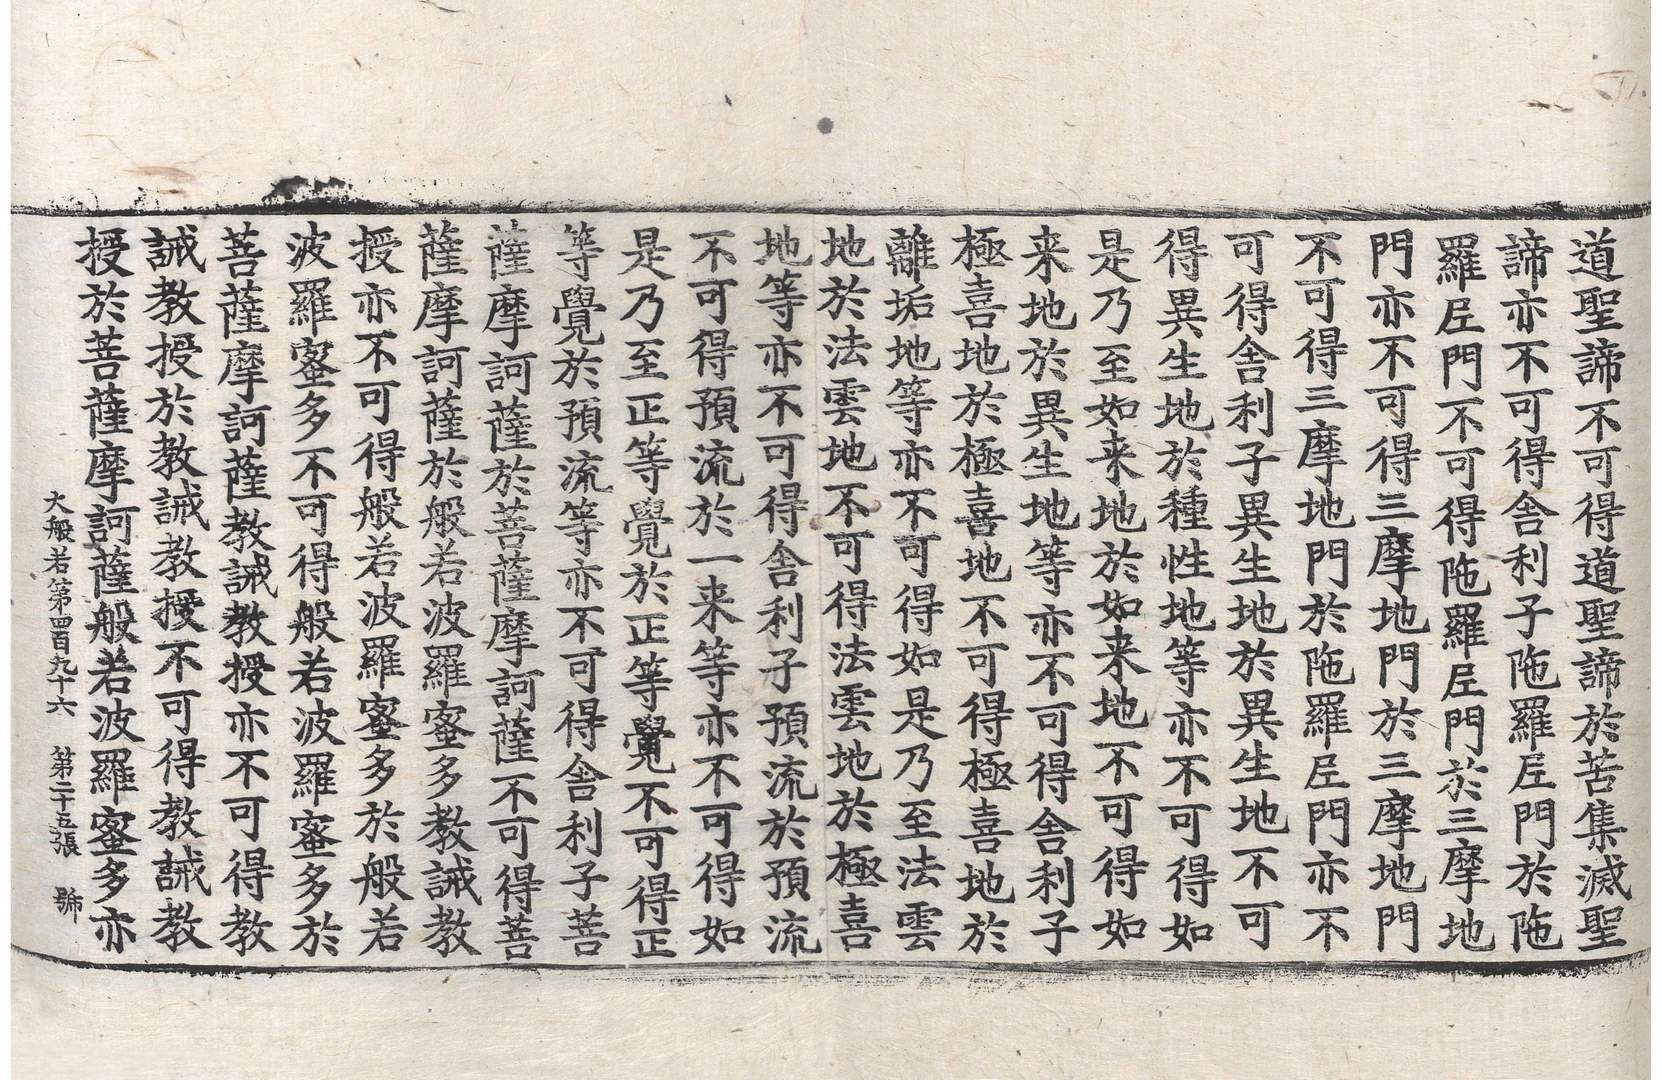 道聖諦不可得道聖諦於苦集滅聖
諦亦不可得舎利子陁羅𡰱門於陁
羅𡰱門不可得陁羅𡰱門於三摩地
門亦不可得三摩地門於三摩地門
不可得三摩地門於陁羅𡰱門亦不
可得舎利子異生地於異生地不可
得異生地於種性地等亦不可得如
是乃至如来地於如来地不可得如
来地於異生地等亦不可得舎利子
極喜地於極喜地不可得極喜地於
離垢地等亦不可得如是乃至法雲
地於法雲地不可得法雲地於極喜
地等亦不可得舎利子預流於預流
不可得預流於一来等亦不可得如
是乃至正等覺於正等覺不可得正
等覺於預流等亦不可得舎利子菩
薩摩訶薩於菩薩摩訶薩不可得菩
薩摩訶薩於般若波羅蜜多教誡教
授亦不可得般若波羅蜜多於般若
波羅蜜多不可得般若波羅蜜多於
菩薩摩訶薩教誡教授亦不可得教
誡教授於教誡教授不可得教誡教
授於菩薩摩訶薩般若波羅蜜多亦
大般若第四百九十六 第二十五張 號